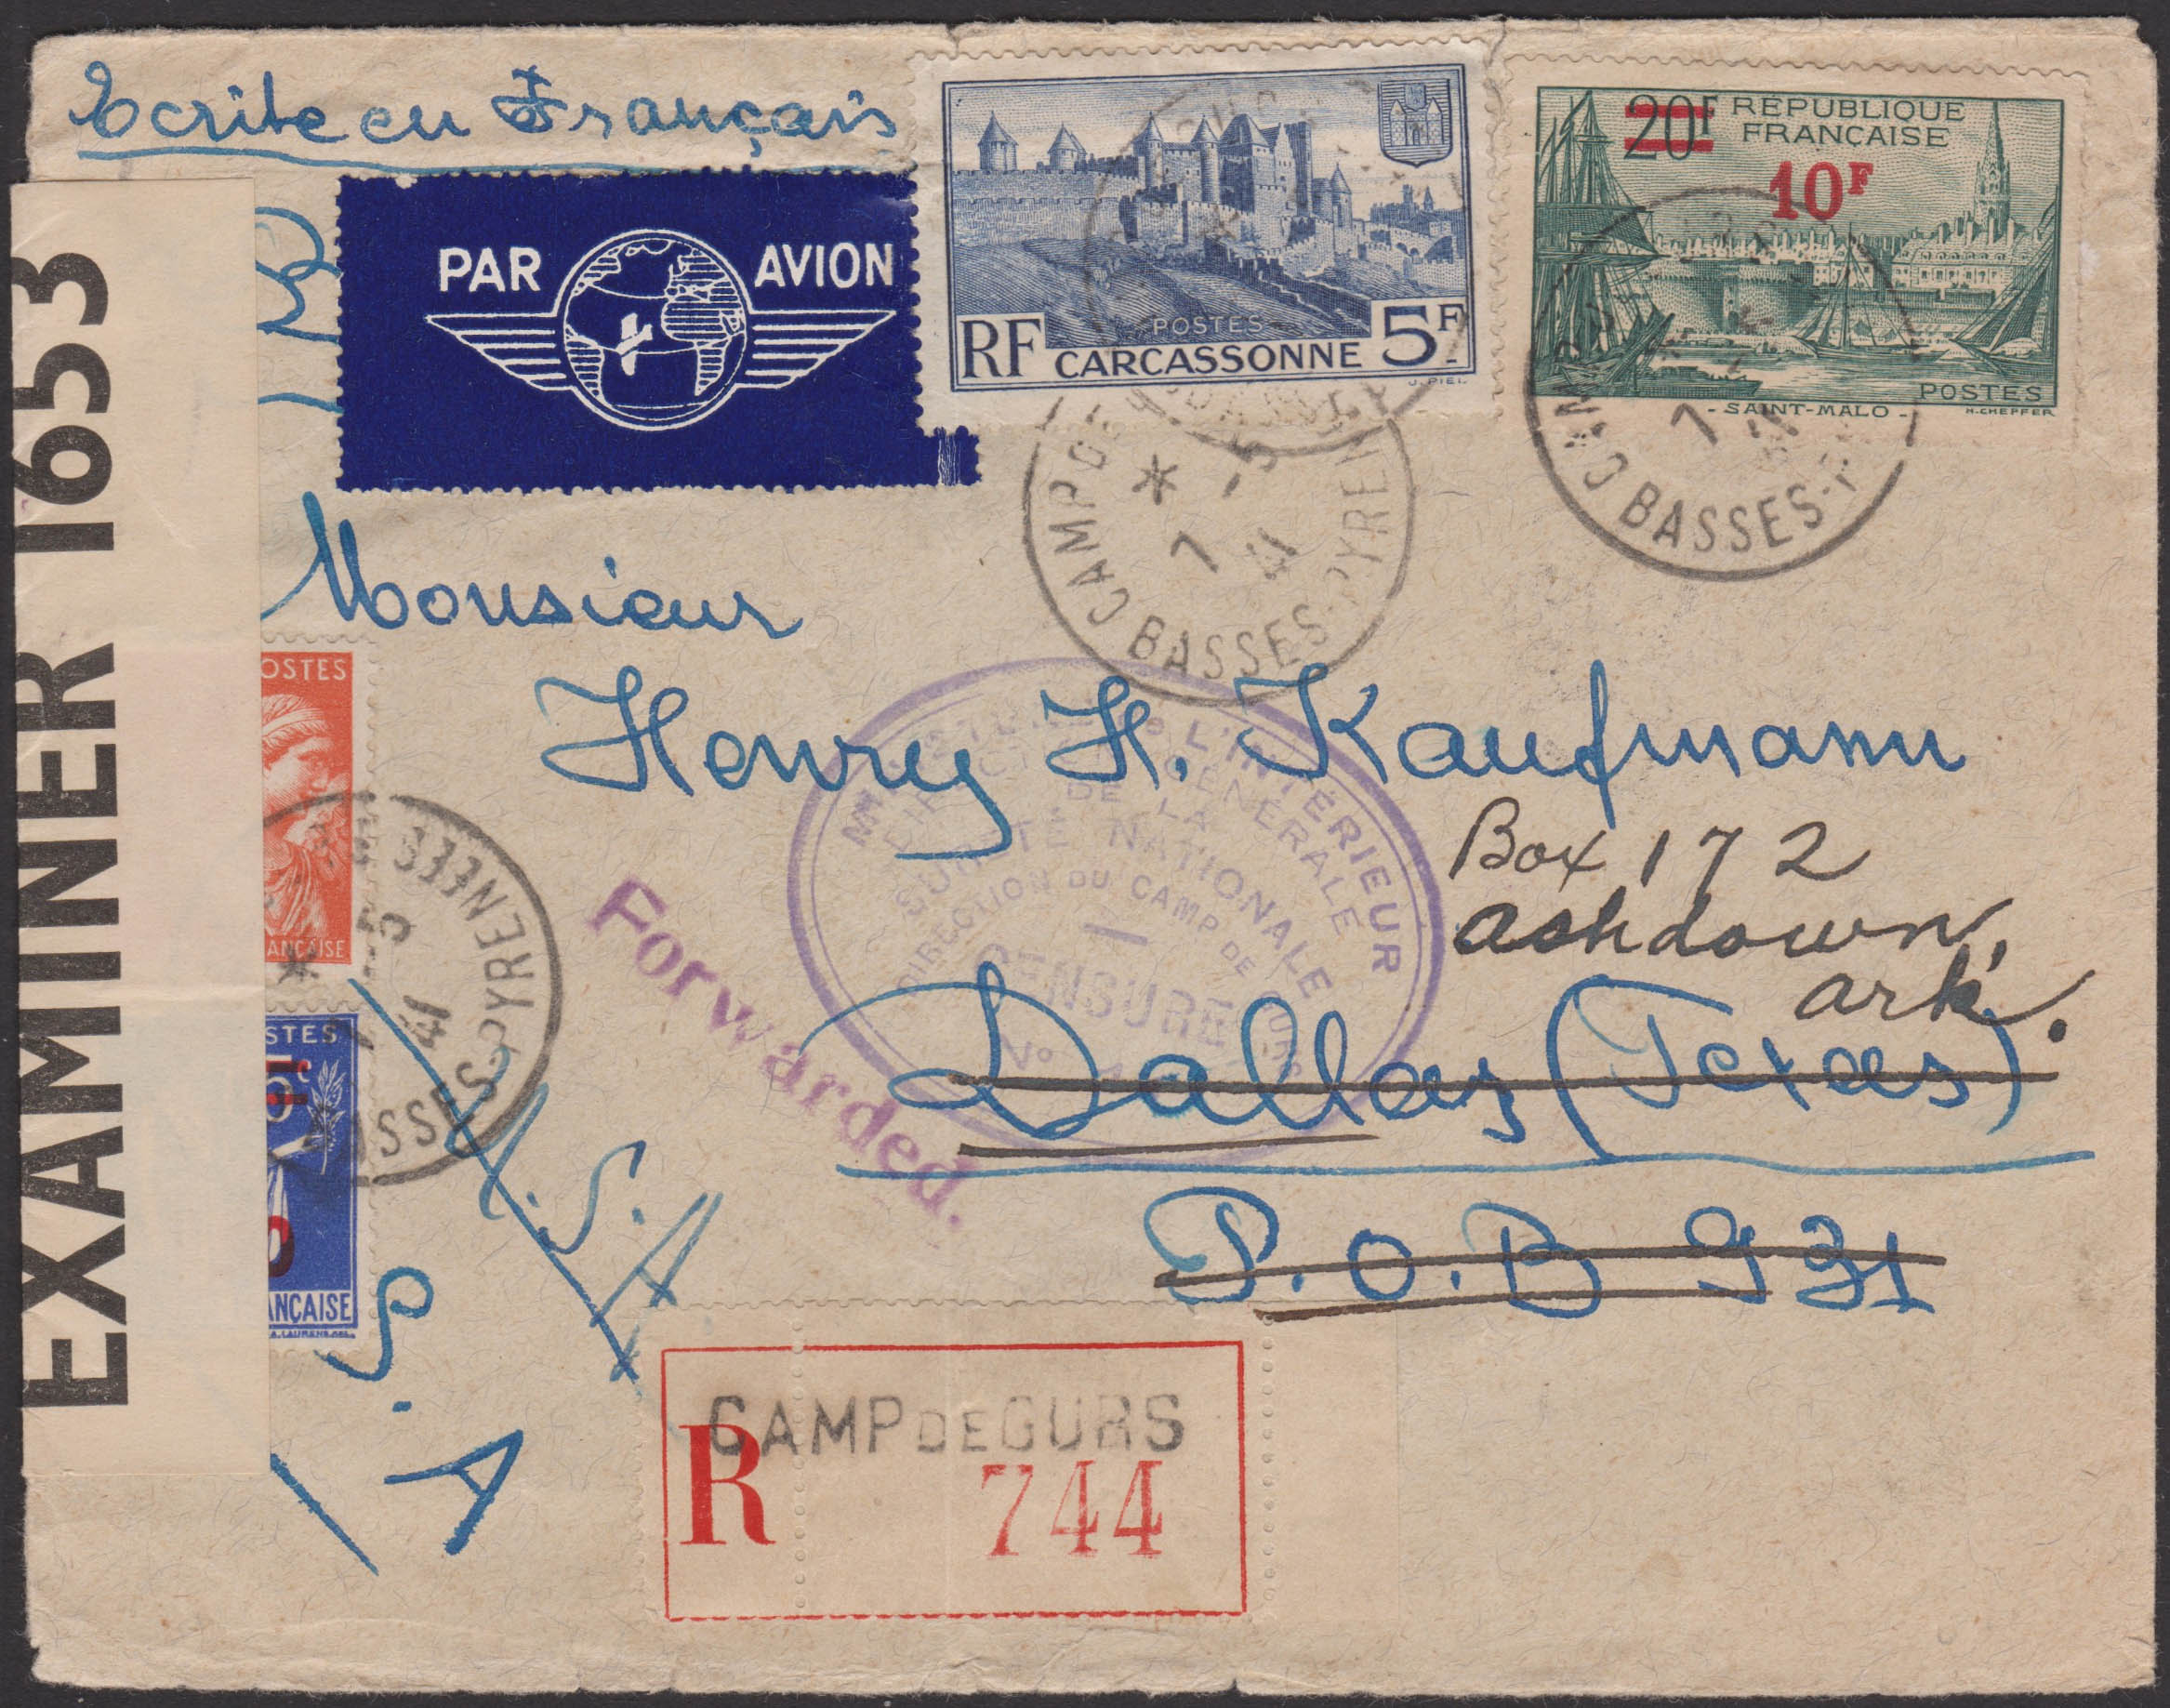 Ecrite en Français
PAR AVION
RF POSTES 5F
CARCASSONNE
J. PIEL
20F RÉPUBLIQUE
FRANÇAISE
10F
POSTES
- SAINT-MALO -
H. CHEFFER
EXAMINER 1653
R
CAMP DE
* 7 -5 41
BASSES-PYREN
7
41
BASSES-P
Monsieur
Henry H. Kaufmann
Box 172
Ashdown,
Ark.
Dallas (Texas)
P.O.B 931
Forwarded.
L'INTÉRIEUR
GÉNÉRALE
DE LA
NATIONALE
DIRECTION DU CAMP DE GURS
CENSURE
No
OSTES
ANÇAISE
STES
ANÇAISE
A. LAURENS DEL.
* 5 41
ASSES-PYRENEES
U.S.A
S.A
CAMP DE GURS
R 744